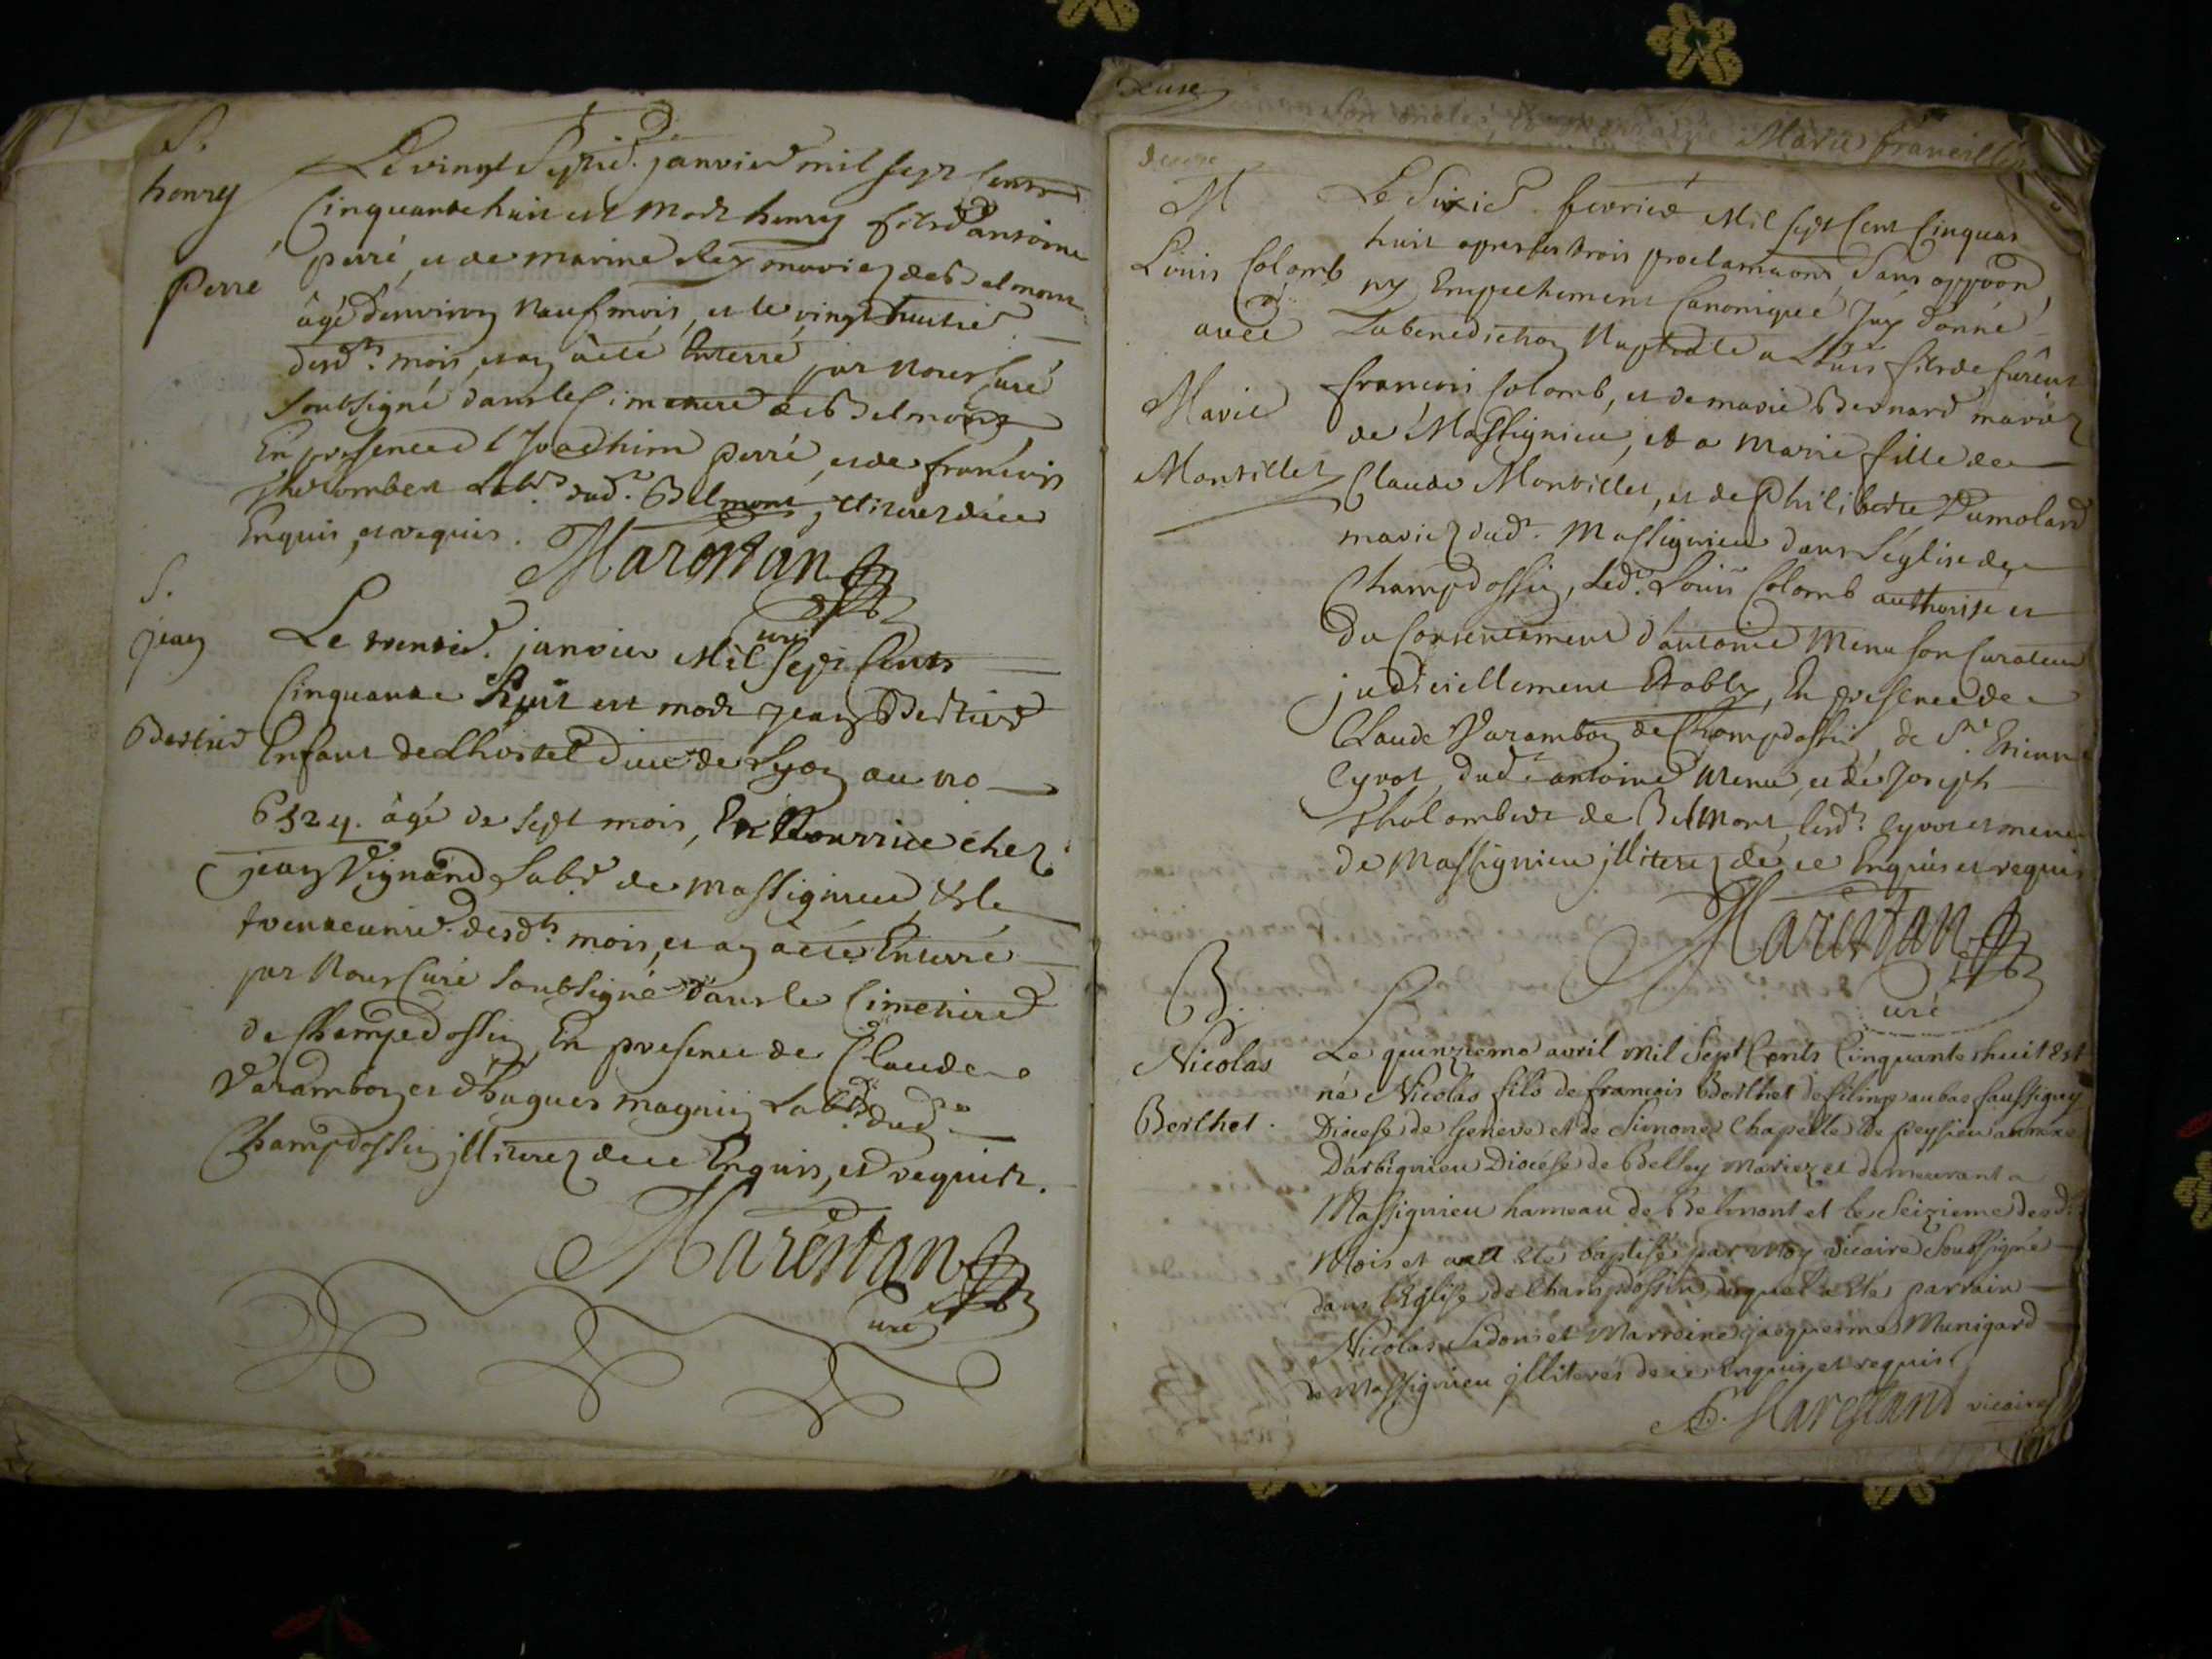 S.
henry
perré
Le vingt Septie. janvier mil sept Cents
Cinquante huit est Mort henry fils d'antoine
perré, et de marine Rey mariez de Belmont
âgé d'environ Neuf mois, et le vingt huitie
desdts. mois, et an à eté Enterré par Nous Curé
soubsigné dans le Cimetiere de Belmont
En presence de Joachim perré, et de francois
Tholombert Labrs dud. Belmont, illiterez de ce
Enquis, et requis.
Marestan
Curé
S.
jean
Bertier
Le trentie. janvier Mil Sept Cents
Cinquante huit est mort jean Bertier
Enfant de L'hostel Dieu de Lyon au no
6524. âgé de sept mois, En Nourrice chez
jean Vignand Labr de Massignieu et le
trente unie. desdts. mois, et an à eté Enterré
par Nous Curé soubsigné dans le Cimetiere
de Champdossin En presence de Claude
Varambon et d'hugues magnin Labrs dud.
Champdossin jlliterez de ce Enquis, et requis.
Marestan
Curé
Marie
M
Louis Colomb
avec
Marie
Montillet
Le Sixie. fevrier Mil sept Cent Cinquan
huit apres les trois proclamaons, Sans oppoon,
ny Empechement Canonique J'ay donné
La benediction Nuptiale a Louis fils de fûrent
francois Colomb, et de marie Bernard mariez
de Massignieu, et a Marie fille de
Claude Montillet, et de Philiberte Dumolard
mariez dud. Massignieu dans L'eglise de
Champdossin, led. Louis Colomb authorisé et
du Consentement d'antoine Menu son Curateur
judiciellement Etably, En presence de
Claude Varambon de Champdossin, de Sr. Etienne
Cyvot, dud. antoine Menu, et de Joseph
Tholombert de Belmont, lesd. Cyvot et menu
de Massignieu jlliterez de ce Enquis et requis
Marestan
Curé
B.
Nicolas
Berthet.
Le quinzieme avril mil Sept Cents Cinquante huit Est
né Nicolas fils de francois Berthet de filinge au bas faussigny
Diocese de Geneve et de Simone Chapelle de peysieu annexe
D'arbignieu Diocese de Belley Mariez et demeurant a
Massignieu hameau de Belmont et le Seizieme desd.
Mois et an a Eté baptisé par Moy vicaire Soussigné
dans L'Eglise de Champdossin, duquel a Eté parrain
Nicolas et Marreine jacqueme Munigard
de Massignieu jlliterés de ce Enquis et requis.
Marestand vicaire